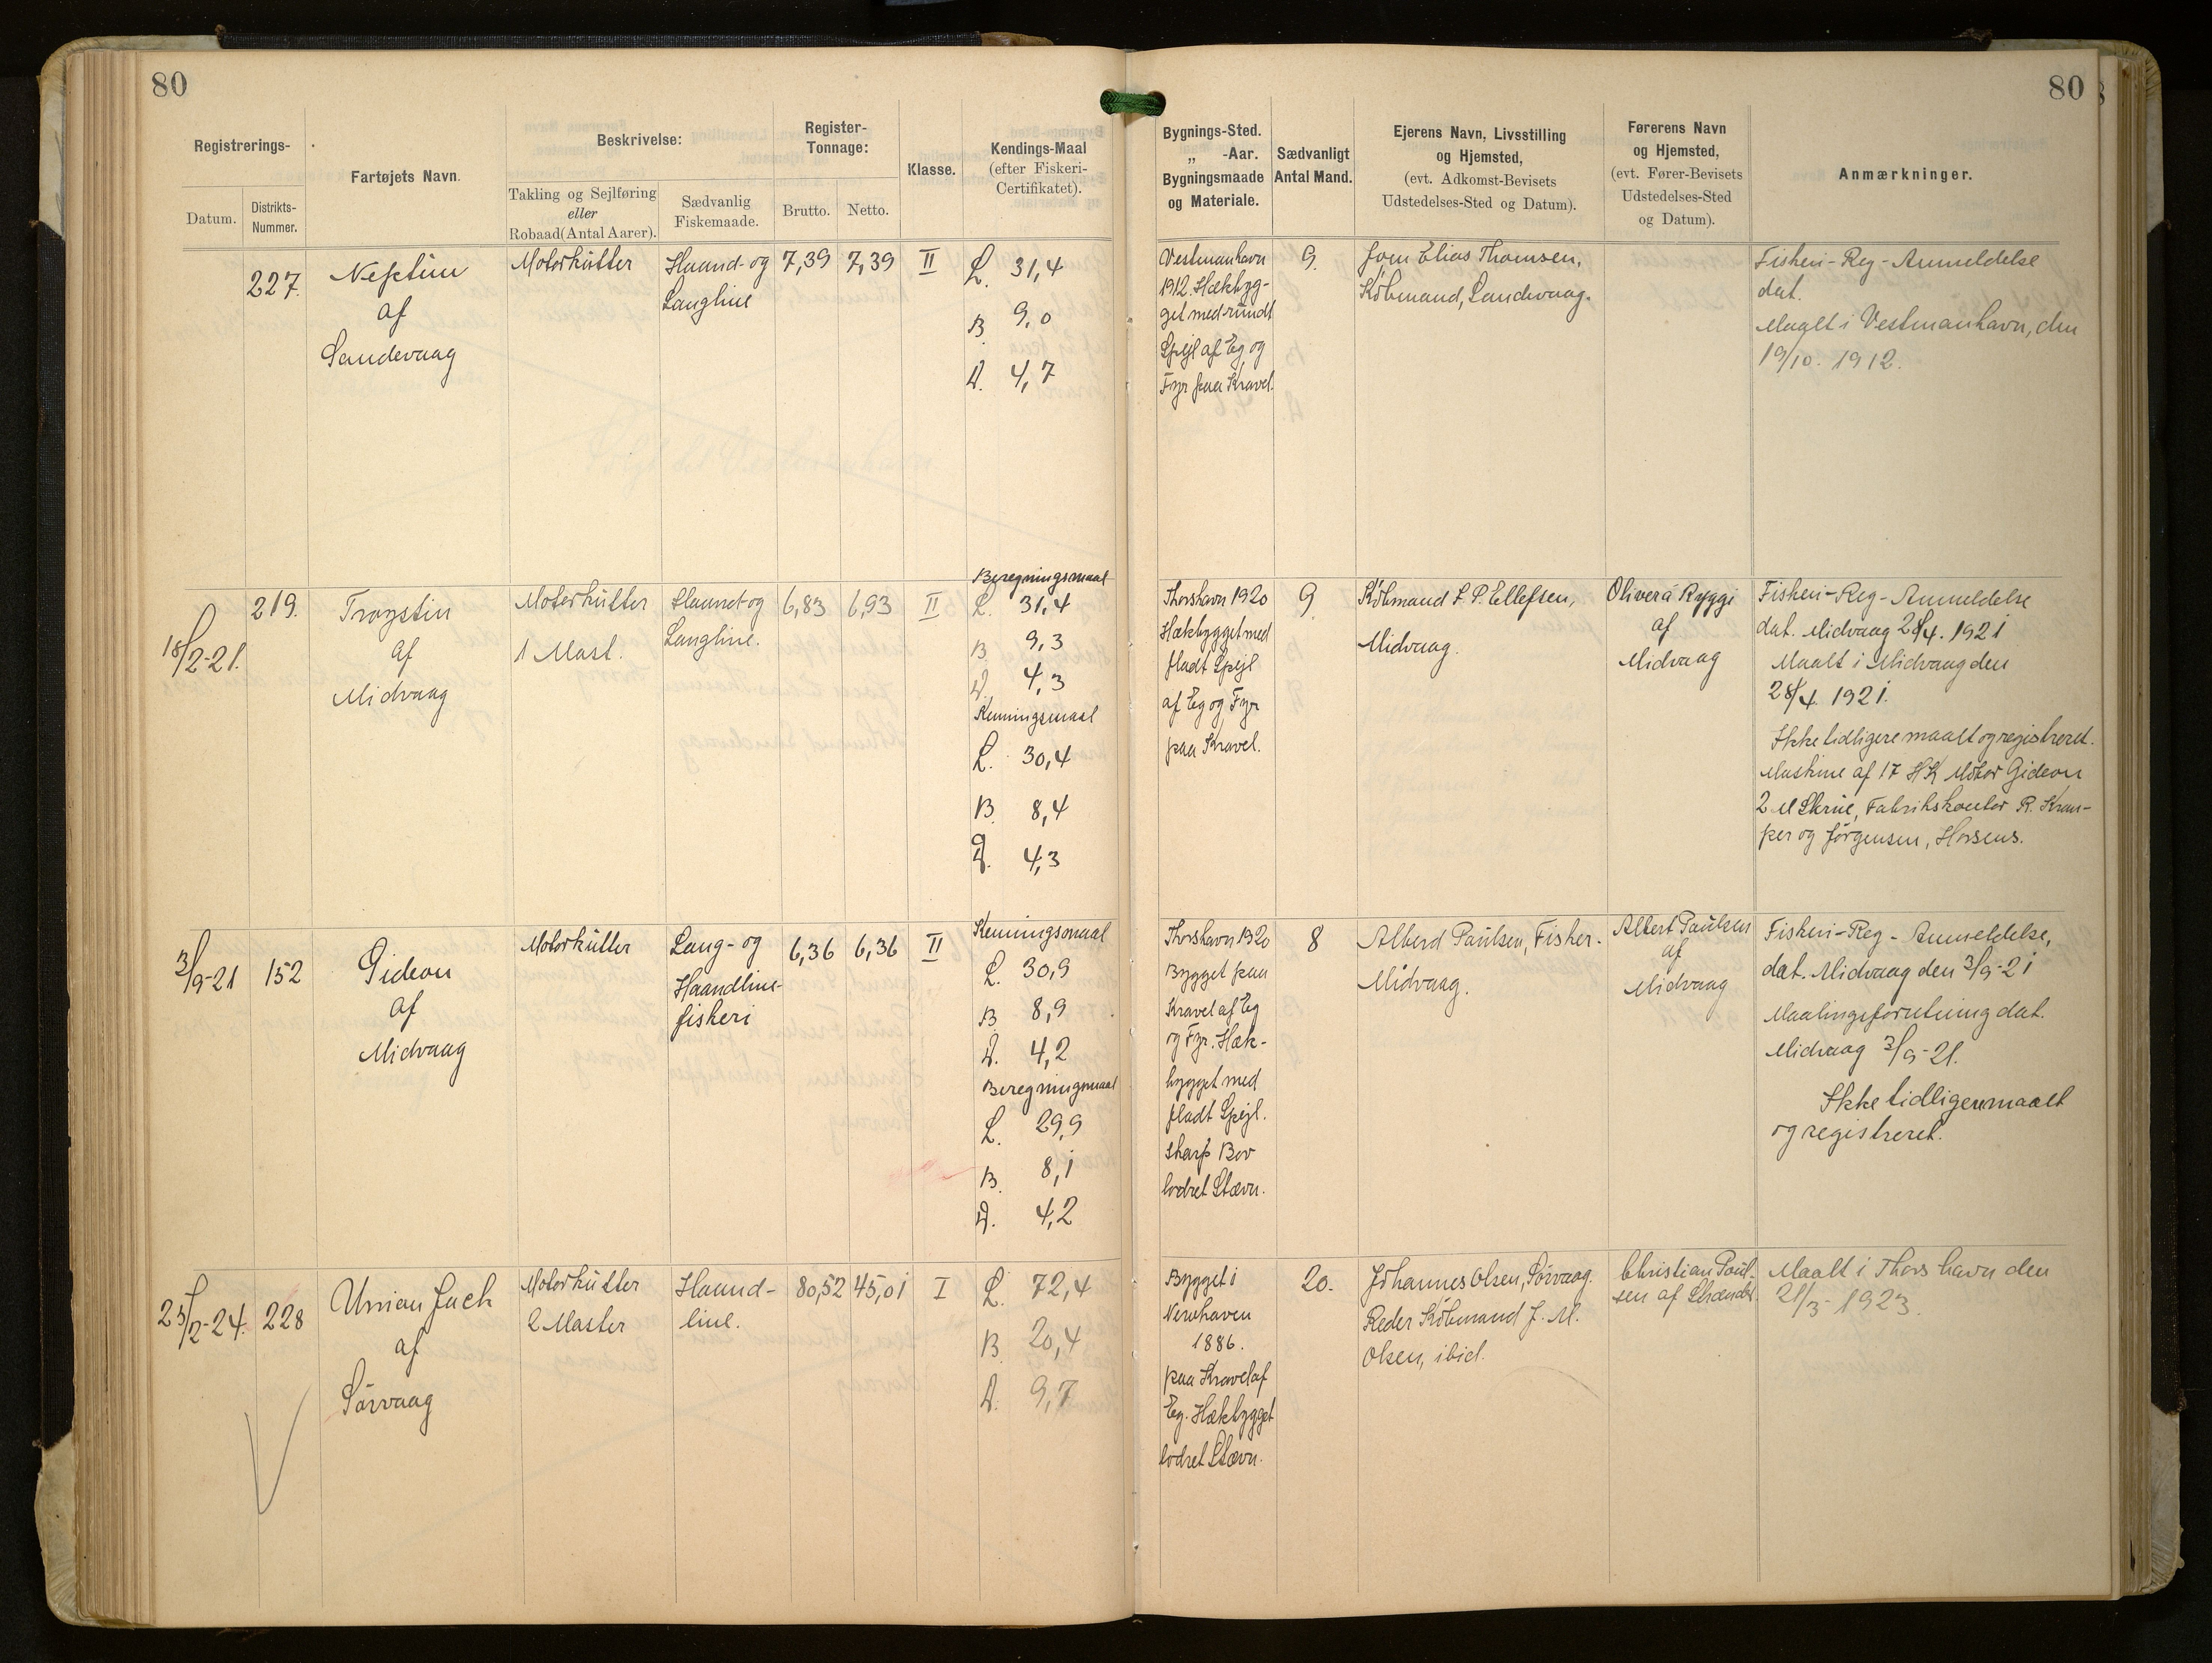 80
80
Registrerings-
Datum.
Distrikts-
Nummer.
Fartøjets Navn.
Beskrivelse:
Takling og Sejlføring
eller
Robaad (Antal Aarer).
Sædvanlig
Fiskemaade.
Register-
Tonnage:
Brutto.
Netto.
Klasse.
Kendings-Maal
(efter Fiskeri-
Certifikatet).
Bygnings-Sted.
„ -Aar.
Bygningsmaade
og Materiale.
Sædvanligt
Antal Mand.
Ejerens Navn, Livsstilling
og Hjemsted,
(evt. Adkomst-Bevisets
Udstedelses-Sted og Datum).
Førerens Navn
og Hjemsted,
(evt. Fører-Bevisets
Udstedelses-Sted
og Datum).
Anmærkninger.
227.
Neptun
af
Sandevaag
Motorkutter
Haand- og
Langline
7,39
7,39
II
L. 31,4
B. 9,0
D. 4,7
Vestmanhavn
1912. Hækbyg-
get med rundt
Spejl af Eg og
Fyr paa Kravel.
9.
Joen Elias Thomsen,
Købmand, Sandevaag.
Fiskeri-Reg-Anmeldelse
dat.
Maalt i Vestmanhavn, den
19/10. 1912.
18/2-21.
219.
af
Midvaag
Motorkutter
1 Mast.
Haand- og
Langline.
6,83
6,93
II
Beregningsmaal
L. 31,4
B. 9,3
D. 4,3
Kenningsmaal
L. 30,4
B. 8,4
D. 4,3
Thorshavn 1920
Hækbygget med
fladt Spejl
af Eg og Fyr
paa Kravel.
9
Købmand S. P. Ellefsen,
Midvaag.
Oliver á Ryggi
af
Midvaag
Fiskeri-Reg-Anmeldelse
dat. Midvaag 28/4. 1921
Maalt i Midvaag den
28/4 1921.
Ikke tidligere maalt og registreret.
Maskine af 17 HK Motor Gideon
2 Skrue, Fabrikskontor R. Kram-
per og Jørgensen, Horsens.
3/9-21
152
Gideon
af
Midvaag
Motorkutter
Lang- og
Haandline-
fiskeri
6,36
6,36
II
Kenningsmaal
L. 30,9
B. 8,9
D. 4,2
Beregningsmaal
L. 29,9
B. 8,1
D. 4,2
Thorshavn 1920
Bygget paa
Kravel af Eg
og Fyr. Hæk-
bygget med
fladt Spejl.
skarp Bov
lodret Stævn.
8
Alberd Paulsen, Fisker.
Midvaag.
Albert Paulsen
af
Midvaag
Fiskeri-Reg-Anmeldelse,
dat. Midvaag den 3/9-21
Maalingsforretning dat.
Midvaag 3/9-21.
Ikke tidligere maalt
og registreret.
25/2-24.
228
Union Jack
af
Sørvaag
Motorkutter
2 Master
Haand-
line.
80,52
45,01
I
L. 72,4
B. 20,4
D. 9,7
Bygget i
1886.
paa Kravel af
Eg. Hækbygget
lodret Stævn.
20.
Johannes Olsen, Sørvaag.
Reder Købmand J. M.
Olsen, ibid.
Christian Poul-
sen af
Maalt i Thorshavn den
21/3- 1923.